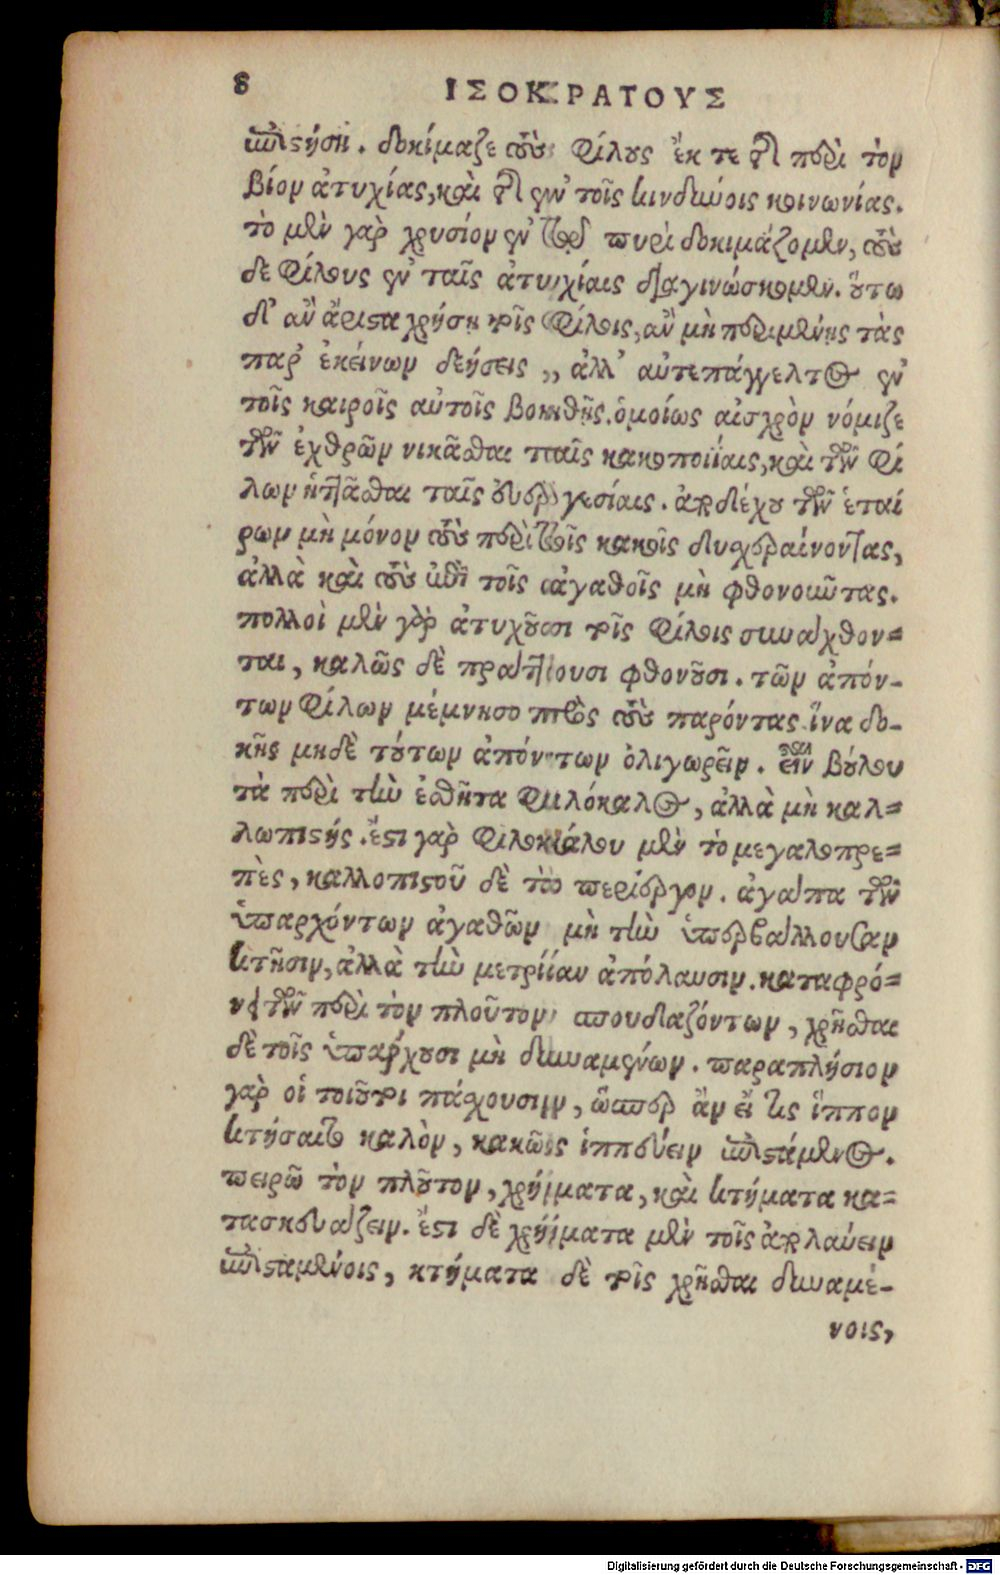 8 ΙΣΟΚΡΑΤΟΥΣ
ἐπιστήσῃ. δοκίμαζε τοὺς φίλους ἔκ τε τῆς περὶ τὸν
βίον ἀτυχίας, καὶ τῆς ἐν τοῖς κινδύνοις κοινωνίας.
τὸ μὲν γὰρ χρυσίον ἐν τῷ πυρὶ δοκιμάζομεν, τοὺς
δε φίλους ἐν ταῖς ἀτυχίαις διαγινώσκομεν. οὕτω
δ' ἂν ἄριστα χρήσῃ τοῖς φίλοις, ἂν μὴ περιμένῃς τὰς
παρ' ἐκείνων δεήσεις, ἀλλ' αὐτεπάγγελτος ἐν
τοῖς καιροῖς αὐτοῖς βοηθῇς. ὁμοίως αἰσχρὸν νόμιζε
τῶν ἐχθρῶν νικᾶσθαι ταῖς κακοποιίαις, καὶ τῶν φί
λων ἡττᾶσθαι ταῖς εὐεργεσίαις. ἀποδέχου τῶν ἑταί
ρων μὴ μόνον τοὺς περὶ τοῖς κακοῖς δυσχεραίνοντας,
ἀλλὰ καὶ τοὺς ἐπὶ τοῖς ἀγαθοῖς μὴ φθονοῦντας.
πολλοὶ μὲν γὰρ ἀτυχοῦσι τοῖς φίλοις συνάχθον-
ται, καλῶς δὲ πράττουσι φθονοῦσι. τῶν ἀπόν-
των φίλων μέμνησο πρὸς τοὺς παρόντας ἵνα δο-
κῇς μηδὲ τούτων ἀπόντων ὀλιγωρεῖν. εἶναι βούλου
τὰ περὶ τὴν ἐσθῆτα φιλόκαλος, ἀλλὰ μὴ καλ-
λωπιστής. ἔστι γὰρ φιλοκάλου μὲν τὸ μεγαλοπρε-
πὲς, καλλοπιστοῦ δὲ τὸ περίεργον. ἀγάπα τῶν
ὑπαρχόντων ἀγαθῶν μὴ τὴν ὑπερβάλλουσαν
κτῆσιν, ἀλλὰ τὴν μετρίαν ἀπόλαυσιν. καταφρό-
νει τῶν περὶ τὸν πλοῦτον σπουδαζόντων, χρῆσθαι
δὲ τοῖς ὑπάρχουσι μὴ δυναμένων. παραπλήσιον
γὰρ οἱ τοιοῦτοι πάσχουσιν, ὥσπερ ἂν εἴ τις ἵππον
κτήσαιτο καλὸν, κακῶς ἱππεύειν ἐπιστάμενος.
πειρῶ τὸν πλοῦτον, χρήματα, καὶ κτήματα κα-
τασκευάζειν. ἔστι δὲ χρήματα μὲν τοῖς ἀπολαύειν
ἐπισταμένοις, κτήματα δὲ τοῖς χρῆσθαι δυναμέ-
νοις,
Digitalisierung gefördert durch die Deutsche Forschungsgemeinschaft - DFG